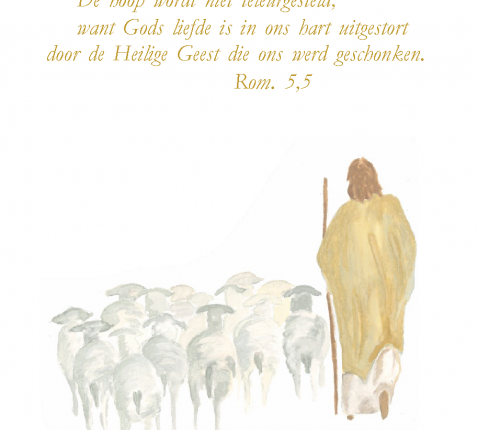 De hoop wordt niet teleurgesteld,
want Gods liefde is in ons hart uitgestort
door de Heilige Geest die ons werd geschonken.
Rom. 5,5